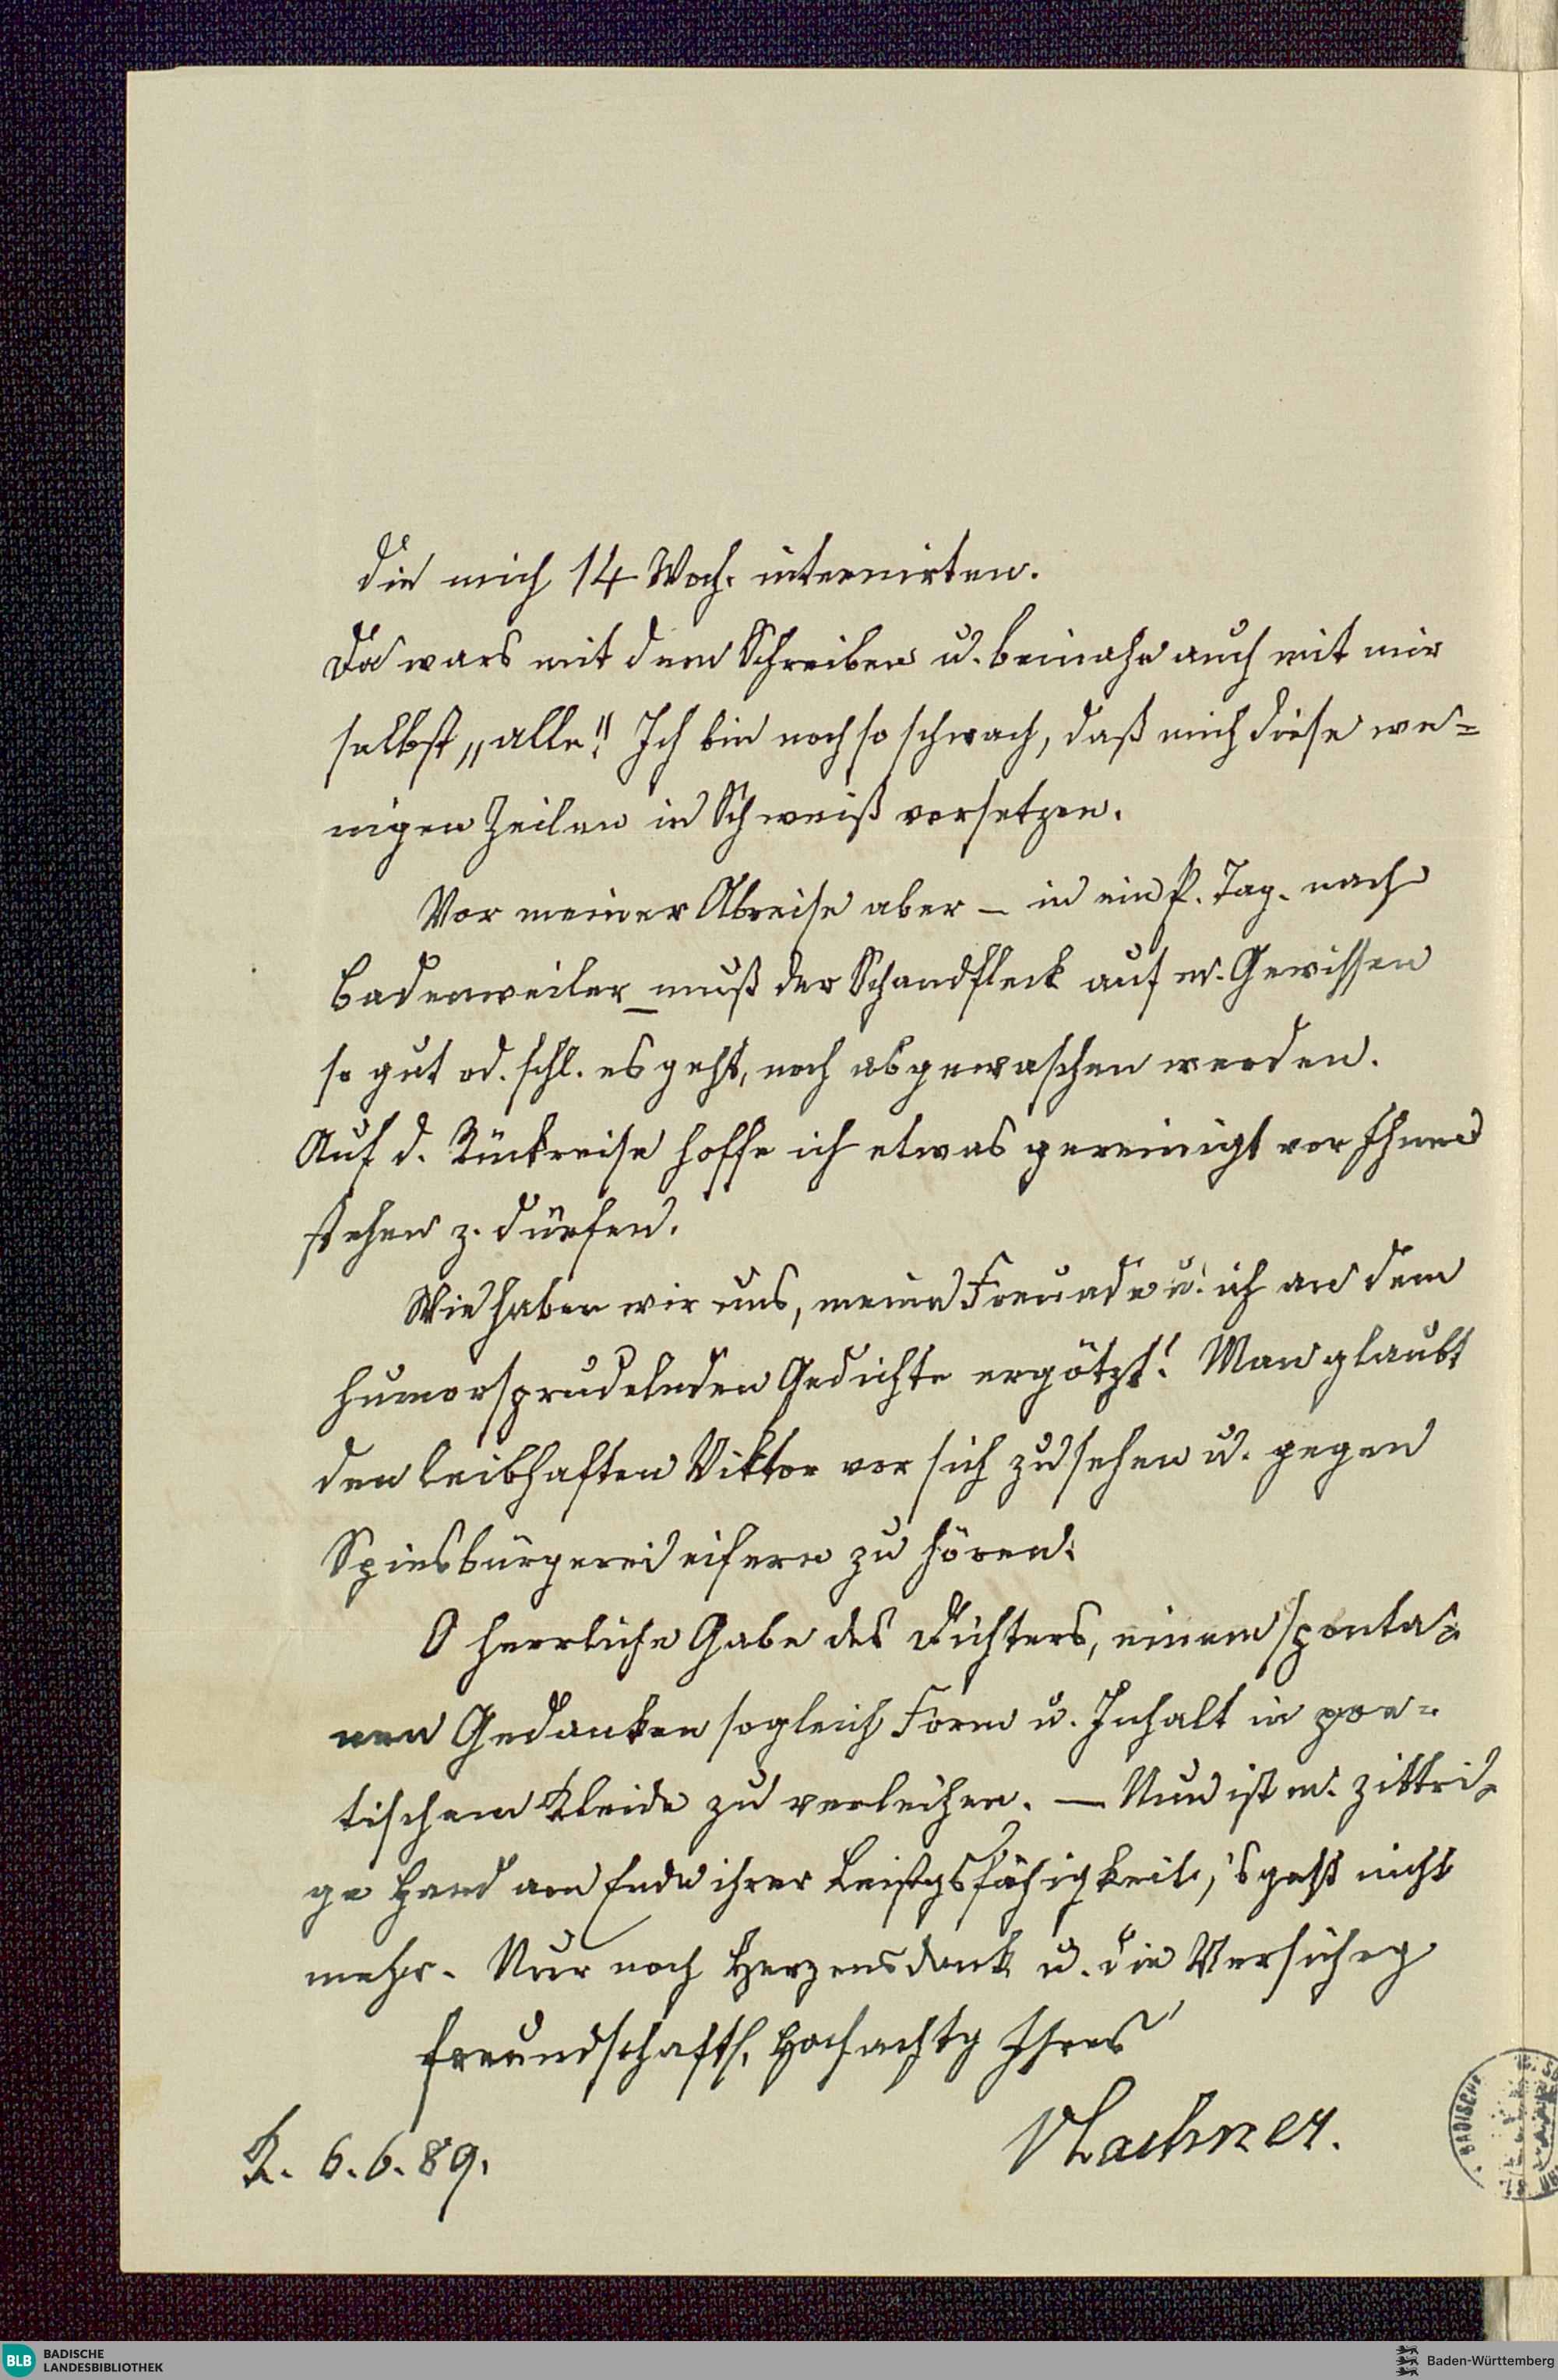 die mich 14 Woch. internirten.
Da wars mit dem Schreiben u. beinahe auch mit mir
selbst „alle"! Ich bin noch so schwach, daß mich diese we=
nigen Zeilen in Schweiß versetzen.
Vor meiner Abreise aber – in ein p. Tag. nach
Badenweiler – muß der Schandfleck auf m. Gewissen
so gut od. schl. es geht, noch abgewaschen werden.
Auf d. Rückreise hoffe ich etwas gereinigt vor Ihnen
stehen z. dürfen.
Wie haben wir uns, meine Freunde u. ich an dem
humorsprudelnden Gedichte ergötzt! Man glaubt
den leibhaften Viktor vor sich zu sehen u. gegen
Spiesbürgerei eifern zu hören.
O herrliche Gabe des Dichters, einem sponta=
nen Gedanken sogleich Form u. Inhalt in poe=
tischem Kleide zu verleihen. — Nun ist m. zittri=
ge Hand am Ende ihrer Leistgsfähigkeit, 's geht nicht
mehr. Nur noch Herzensdank u. die Versicherg
freundschaftl. Hochachtg Ihres
VLachner.
K. 6.6.89.
BADISCHE
BLB BADISCHE
LANDESBIBLIOTHEK
Baden-Württemberg